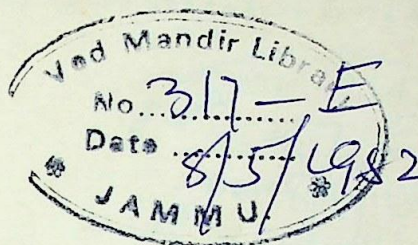 Ved Mandir Library
No. 317-E
Date 8/5/1982
JAMMU.